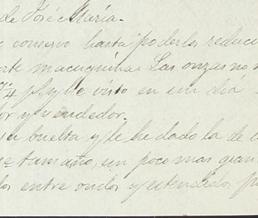 de José María.
conservo hasta poderlos reduci
macuquina. Las onzas no
3/4 p% y he visto en un día
or y vendedor.
su vuelta y le he dado la de
tamaño, un poco mas gran
los entre ondos y estendidos